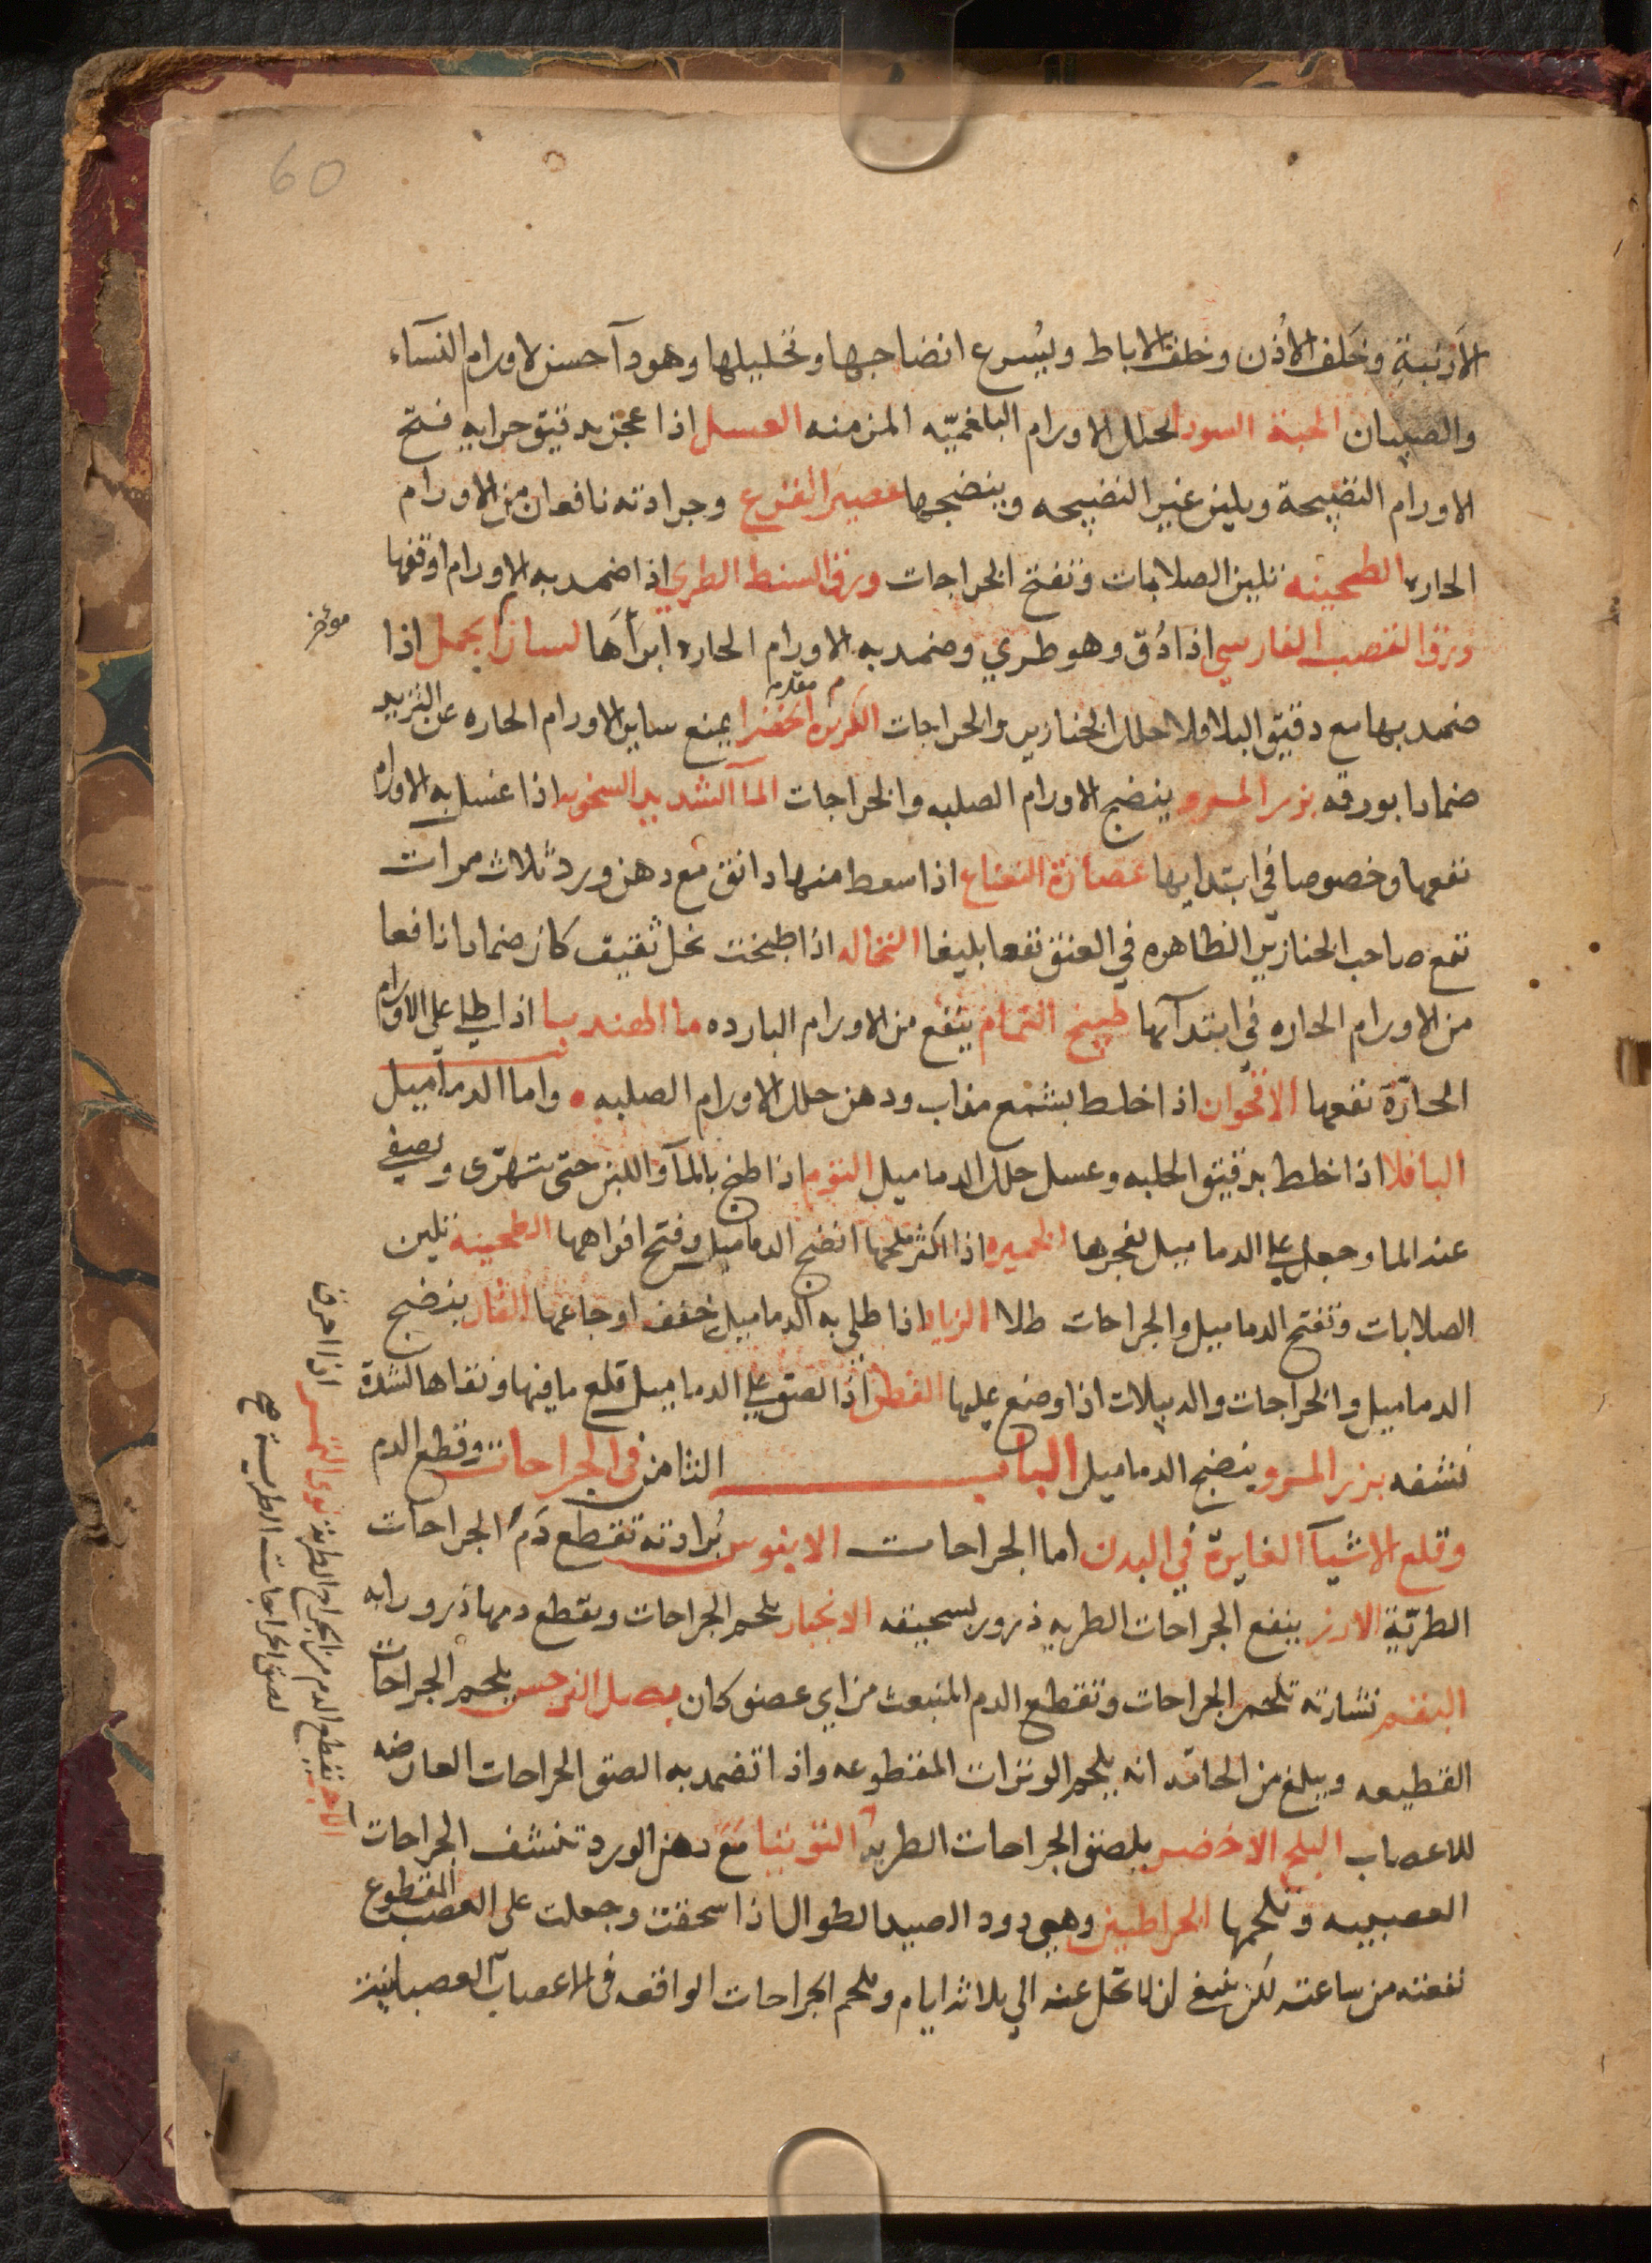 60
الأرنبة وخلف الأذن وخلف الاباط ويسرع انضاجها وتحليلها وهو دآ حسن لاورام النسآء
والصبيان الحبة السودا تحلل الاورام البلغميّه المزمنه العسل اذا عجن بدقيق حوايه فتح
الاورام النضيجة ويلين غير النضيجه وينضجها عصير القرع وجرادته نافعان من الاورام
الحاره الطحينه تلين الصلابات وتفتح الخراجات ورق السنط الطري اذا ضمد به الاورام اوقفها
ورق القصب الفارسي اذا دُق وهو طري وضمد به الاورام الحاره ابرأها لسان الجمل اذا
مؤخر
م مقدم
ضمد بها مع دقيق الباقلا حلل الخنازير والخراجات الكزبره الخضرا يمنع ساير الاورام الحاره عن التزيد
ضمادا بورقه بزر المرو ينضج الاورام الصلبه والخراجات المآ الشديد السخونه اذا غسل به الاورام
نفعها وخصوصا في ابتدايها عصارة النعناع اذا سعط منها دانق مع دهن ورد ثلاث مرات
نفع صاحب الخنازير الظاهره في العنق نفعا بليغا النخاله اذا طبخت بخل ثقيف كان ضمادا نافعا
من الاورام الحاره في ابتدآئها طبيخ النمام ينفع من الاورام البارده ما الهندبا اذا طلي على الاورام
الحارّة نفعها الاقحوان اذا خلط بشمع مذاب ودهن حلل الاورام الصلبه واما الدماميل
الباقلا اذا خلط بدقيق الحلبه وعسل حلل الدماميل الثوم اذا طبخ بالمآ واللبن حتى يتهرّى ويصفى
عنه الما وجعل على الدماميل فجرها الخميره اذا اكثر ملحها انضج الدماميل وفتح افواهها الطحينه تلين
الصلابات وتفتح الدماميل والجراحات طلا الزباد اذا طلي به الدماميل خفف اوجاعها الفار ينضج
الدماميل والخراجات والدبيلات اذا وضع عليها القطن اذا لصق على الدماميل قلع ما فيها ونقاها لشدة
نشفه بزر المرو ينضج الدماميل الباب الثامن في الجراحات وقطع الدم
وقلع الاشيآ الغايرة في البدن اما الجراحات الابنوس بُرادته تقطع دم الجراحات
الطريّة الارز ينفع الجراحات الطريه ذرور بسحيقه الانجبار يلحم الجراحات ويقطع دمها ذرورا به
البقم نشارته تلحم الجراحات وتقطع الدم المنبعث من اي عضو كان بصل النرجس يلحم الجراحات
القطيعه ويبلغ من الحامه انه يلحم الوترات المقطوعه واذا تضمد به الصق الجراحات العارضه
للاعصاب البلح الاخضر يلصق الجراحات الطريه التوتيا مع دهن الورد تنشف الجراحات
العصبيه وتلحمها الخراطين وهي دود الصيد الطوال اذا سحقت وجعلت على العصب المقطوع
نفعته من ساعته لكن ينبغي ان لا تحل عنه الي ثلاثه ايام وتلحم الجراحات الواقعه في الاعصاب
تقطع الدم من الجراح الطريه نوى التمر اذا احرق
لصق الجراحات الطريه صح